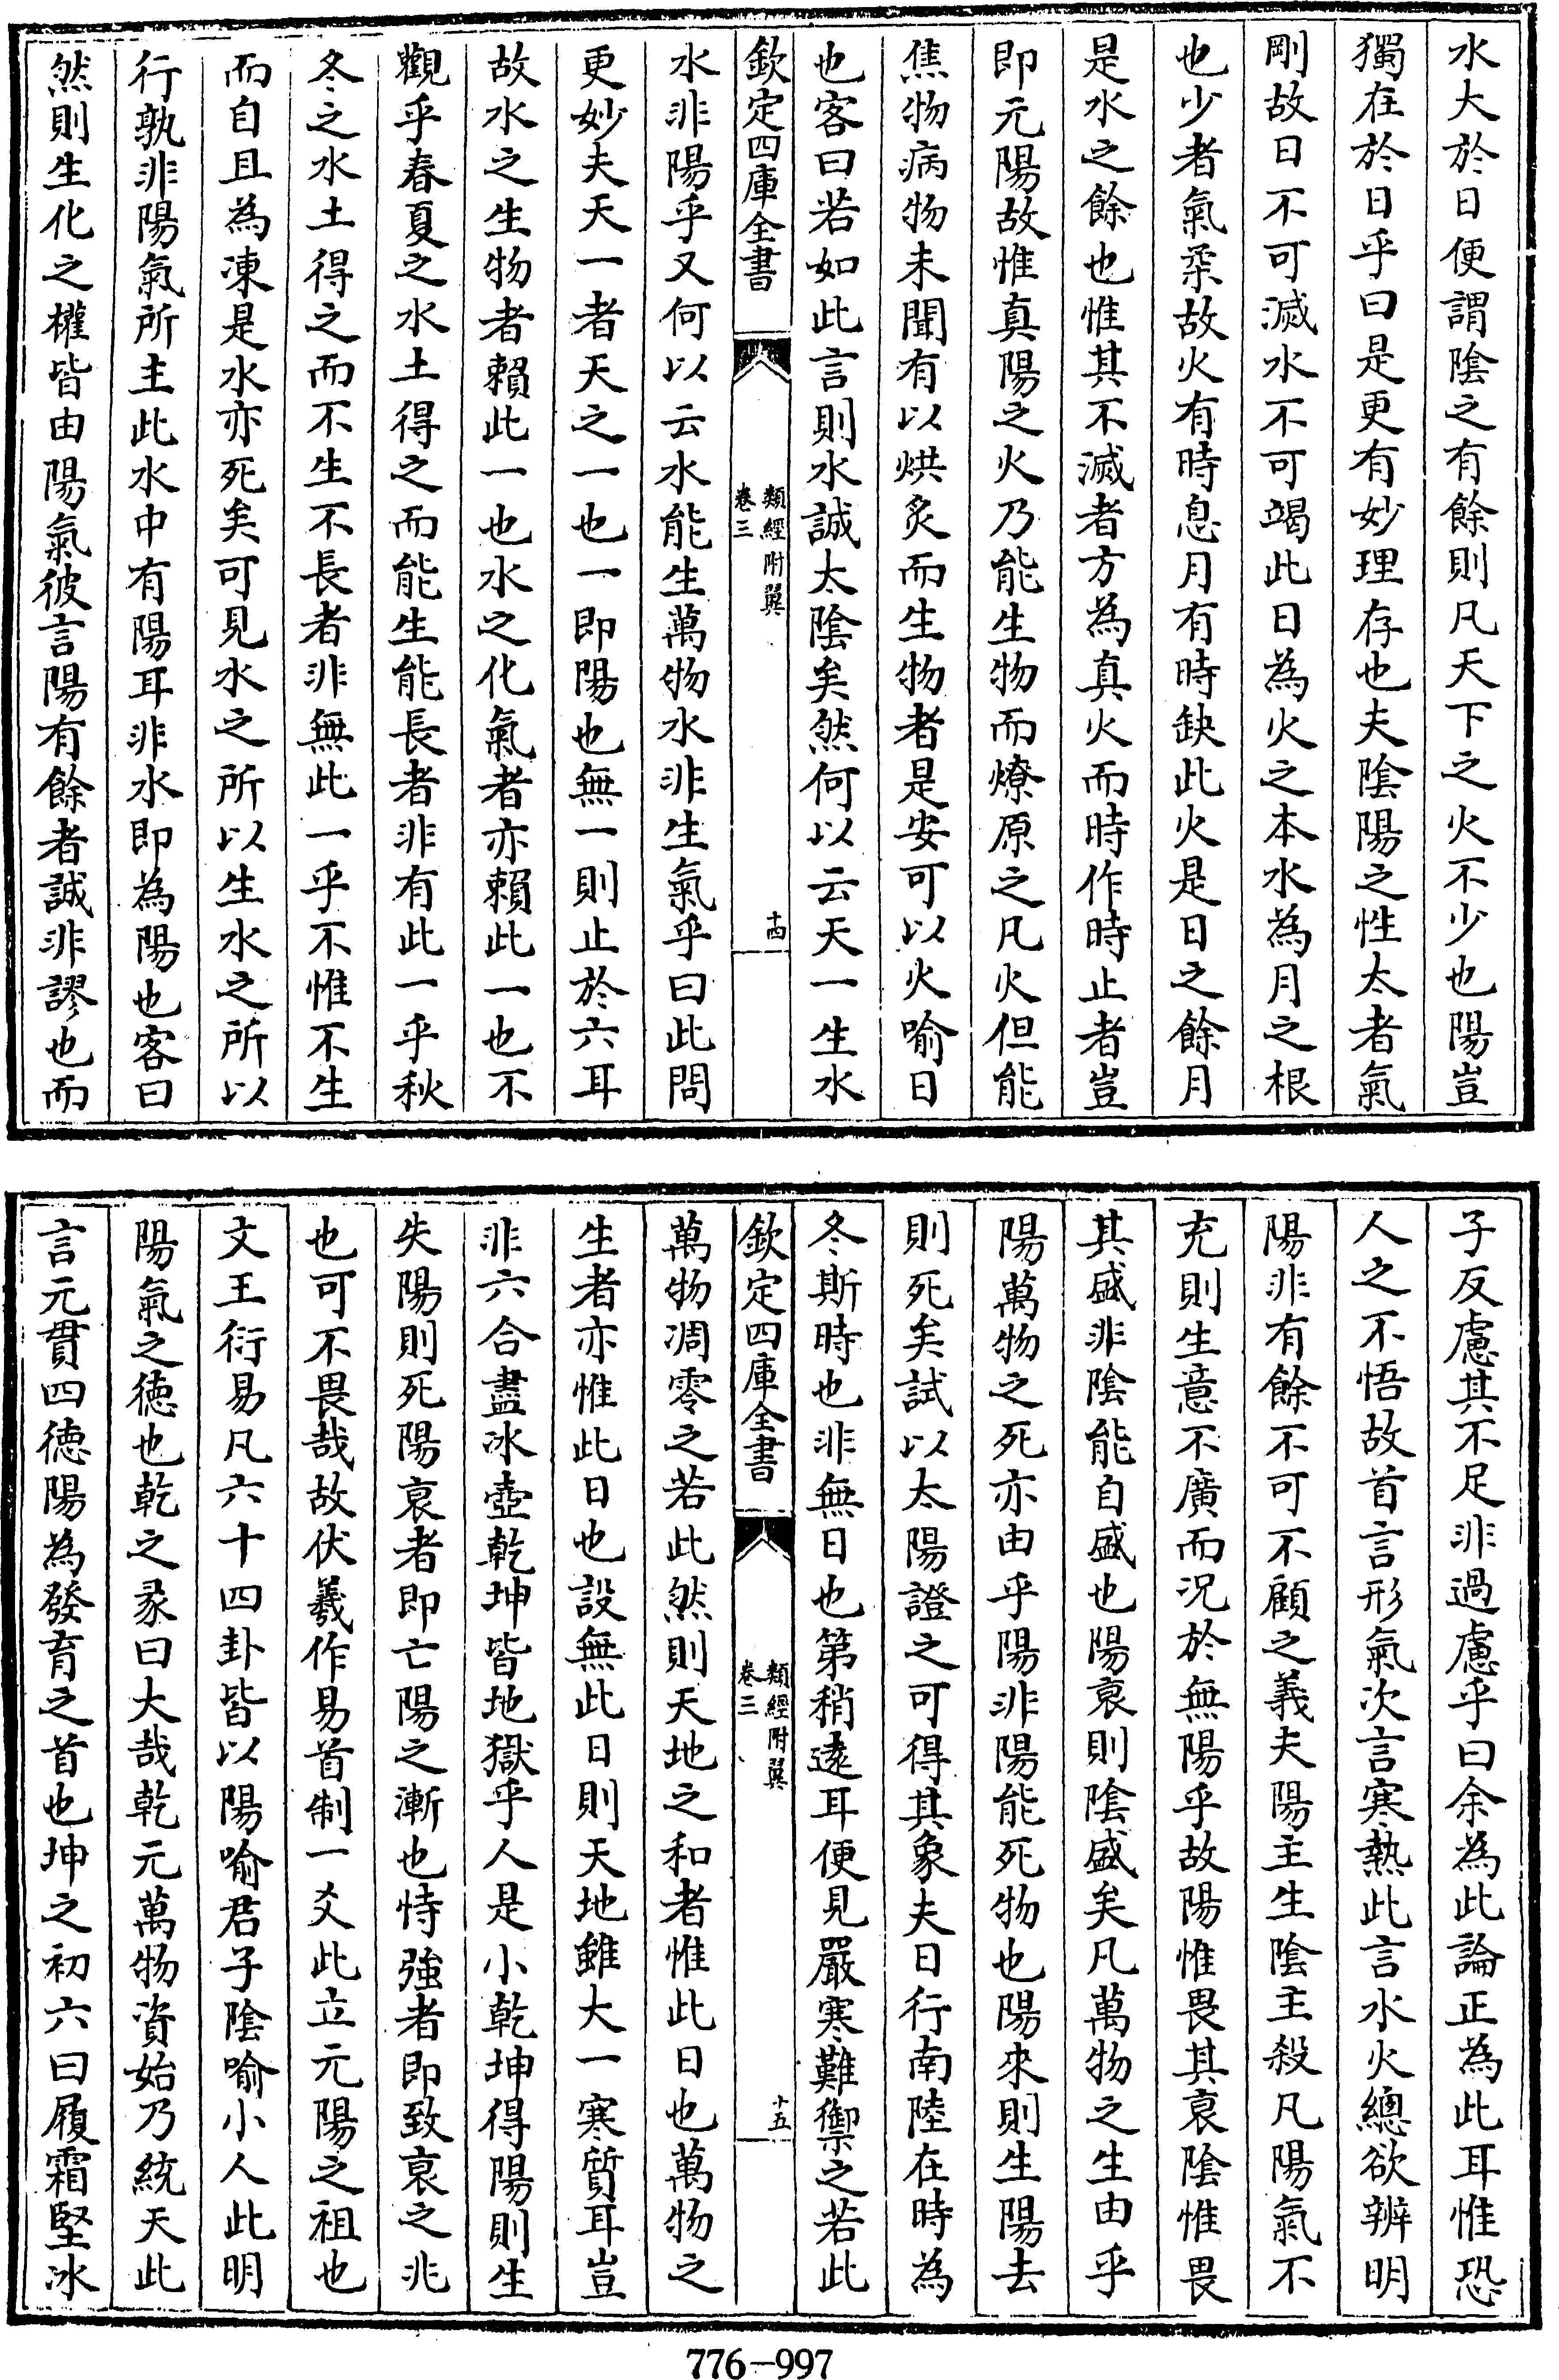 水大於日便謂陰之有餘則凡天下之火不少也陽豈
獨在於日乎曰是更有妙理存也夫陰陽之性太者氣
剛故日不可滅水不可竭此日為火之本水為月之根
也少者氣柔故火有時息月有時缺此火是日之餘月
是水之餘也惟其不滅者方為真火而時作時止者豈
即元陽故惟真陽之火乃能生物而燎原之凡火但能
焦物病物未聞有以烘炙而生物者是安可以火喻日
也客曰若如此言則水誠太陰矣然何以云天一生水
欽定四庫全書
類經附翼
卷三
十四
水非陽乎又何以云水能生萬物水非生氣乎曰此問
更妙夫天一者天之一也一即陽也無一則止於六耳
故水之生物者賴此一也水之化氣者亦賴此一也不
觀乎春夏之水土得之而能生能長者非有此一乎秋
冬之水土得之而不生不長者非無此一乎不惟不生
而自且為凍是水亦死矣可見水之所以生水之所以
行孰非陽氣所主此水中有陽耳非水即為陽也客曰
然則生化之權皆由陽氣彼言陽有餘者誠非謬也而
子反慮其不足非過慮乎曰余為此論正為此耳惟恐
人之不悟故首言形氣次言寒熱此言水火總欲辨明
陽非有餘不可不顧之義夫陽主生陰主殺凡陽氣不
充則生意不廣而況於無陽乎故陽惟畏其衰陰惟畏
其盛非陰能自盛也陽衰則陰盛矣凡萬物之生由乎
陽萬物之死亦由乎陽非陽能死物也陽來則生陽去
則死矣試以太陽證之可得其象夫日行南陸在時為
冬斯時也非無日也第稍遠耳便見嚴寒難禦之若此
欽定四庫全書
類經附翼
卷三
十五
萬物凋零之若此然則天地之和者惟此日也萬物之
生者亦惟此日也設無此日則天地雖大一寒質耳豈
非六合盡冰壺乾坤皆地獄乎人是小乾坤得陽則生
失陽則死陽衰者即亡陽之漸也恃強者即致衰之兆
也可不畏哉故伏羲作易首制一爻此立元陽之祖也
文王衍易凡六十四卦皆以陽喻君子陰喻小人此明
陽氣之德也乾之彖曰大哉乾元萬物資始乃統天此
言元貫四德陽為發育之首也坤之初六曰履霜堅冰
776-997